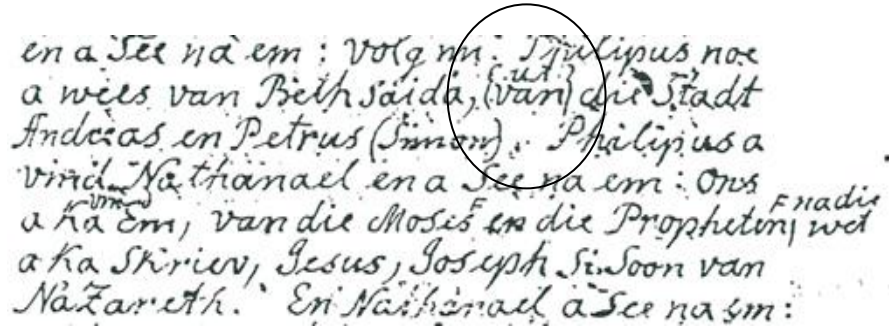 en a See na em: volg mi. noe
ut
a wees van Bethsaida, {van} die Stadt
Andreas en Petrus (Simon). Philipus a
vind Nathanael en a See na em: Ons
vind F F na die
a Ka Em, van die Moses en die Propheten, wet
a Ka Skriev, Jesus, Joseph Si Soon van
NaZareth. En Nathanael a See na em: